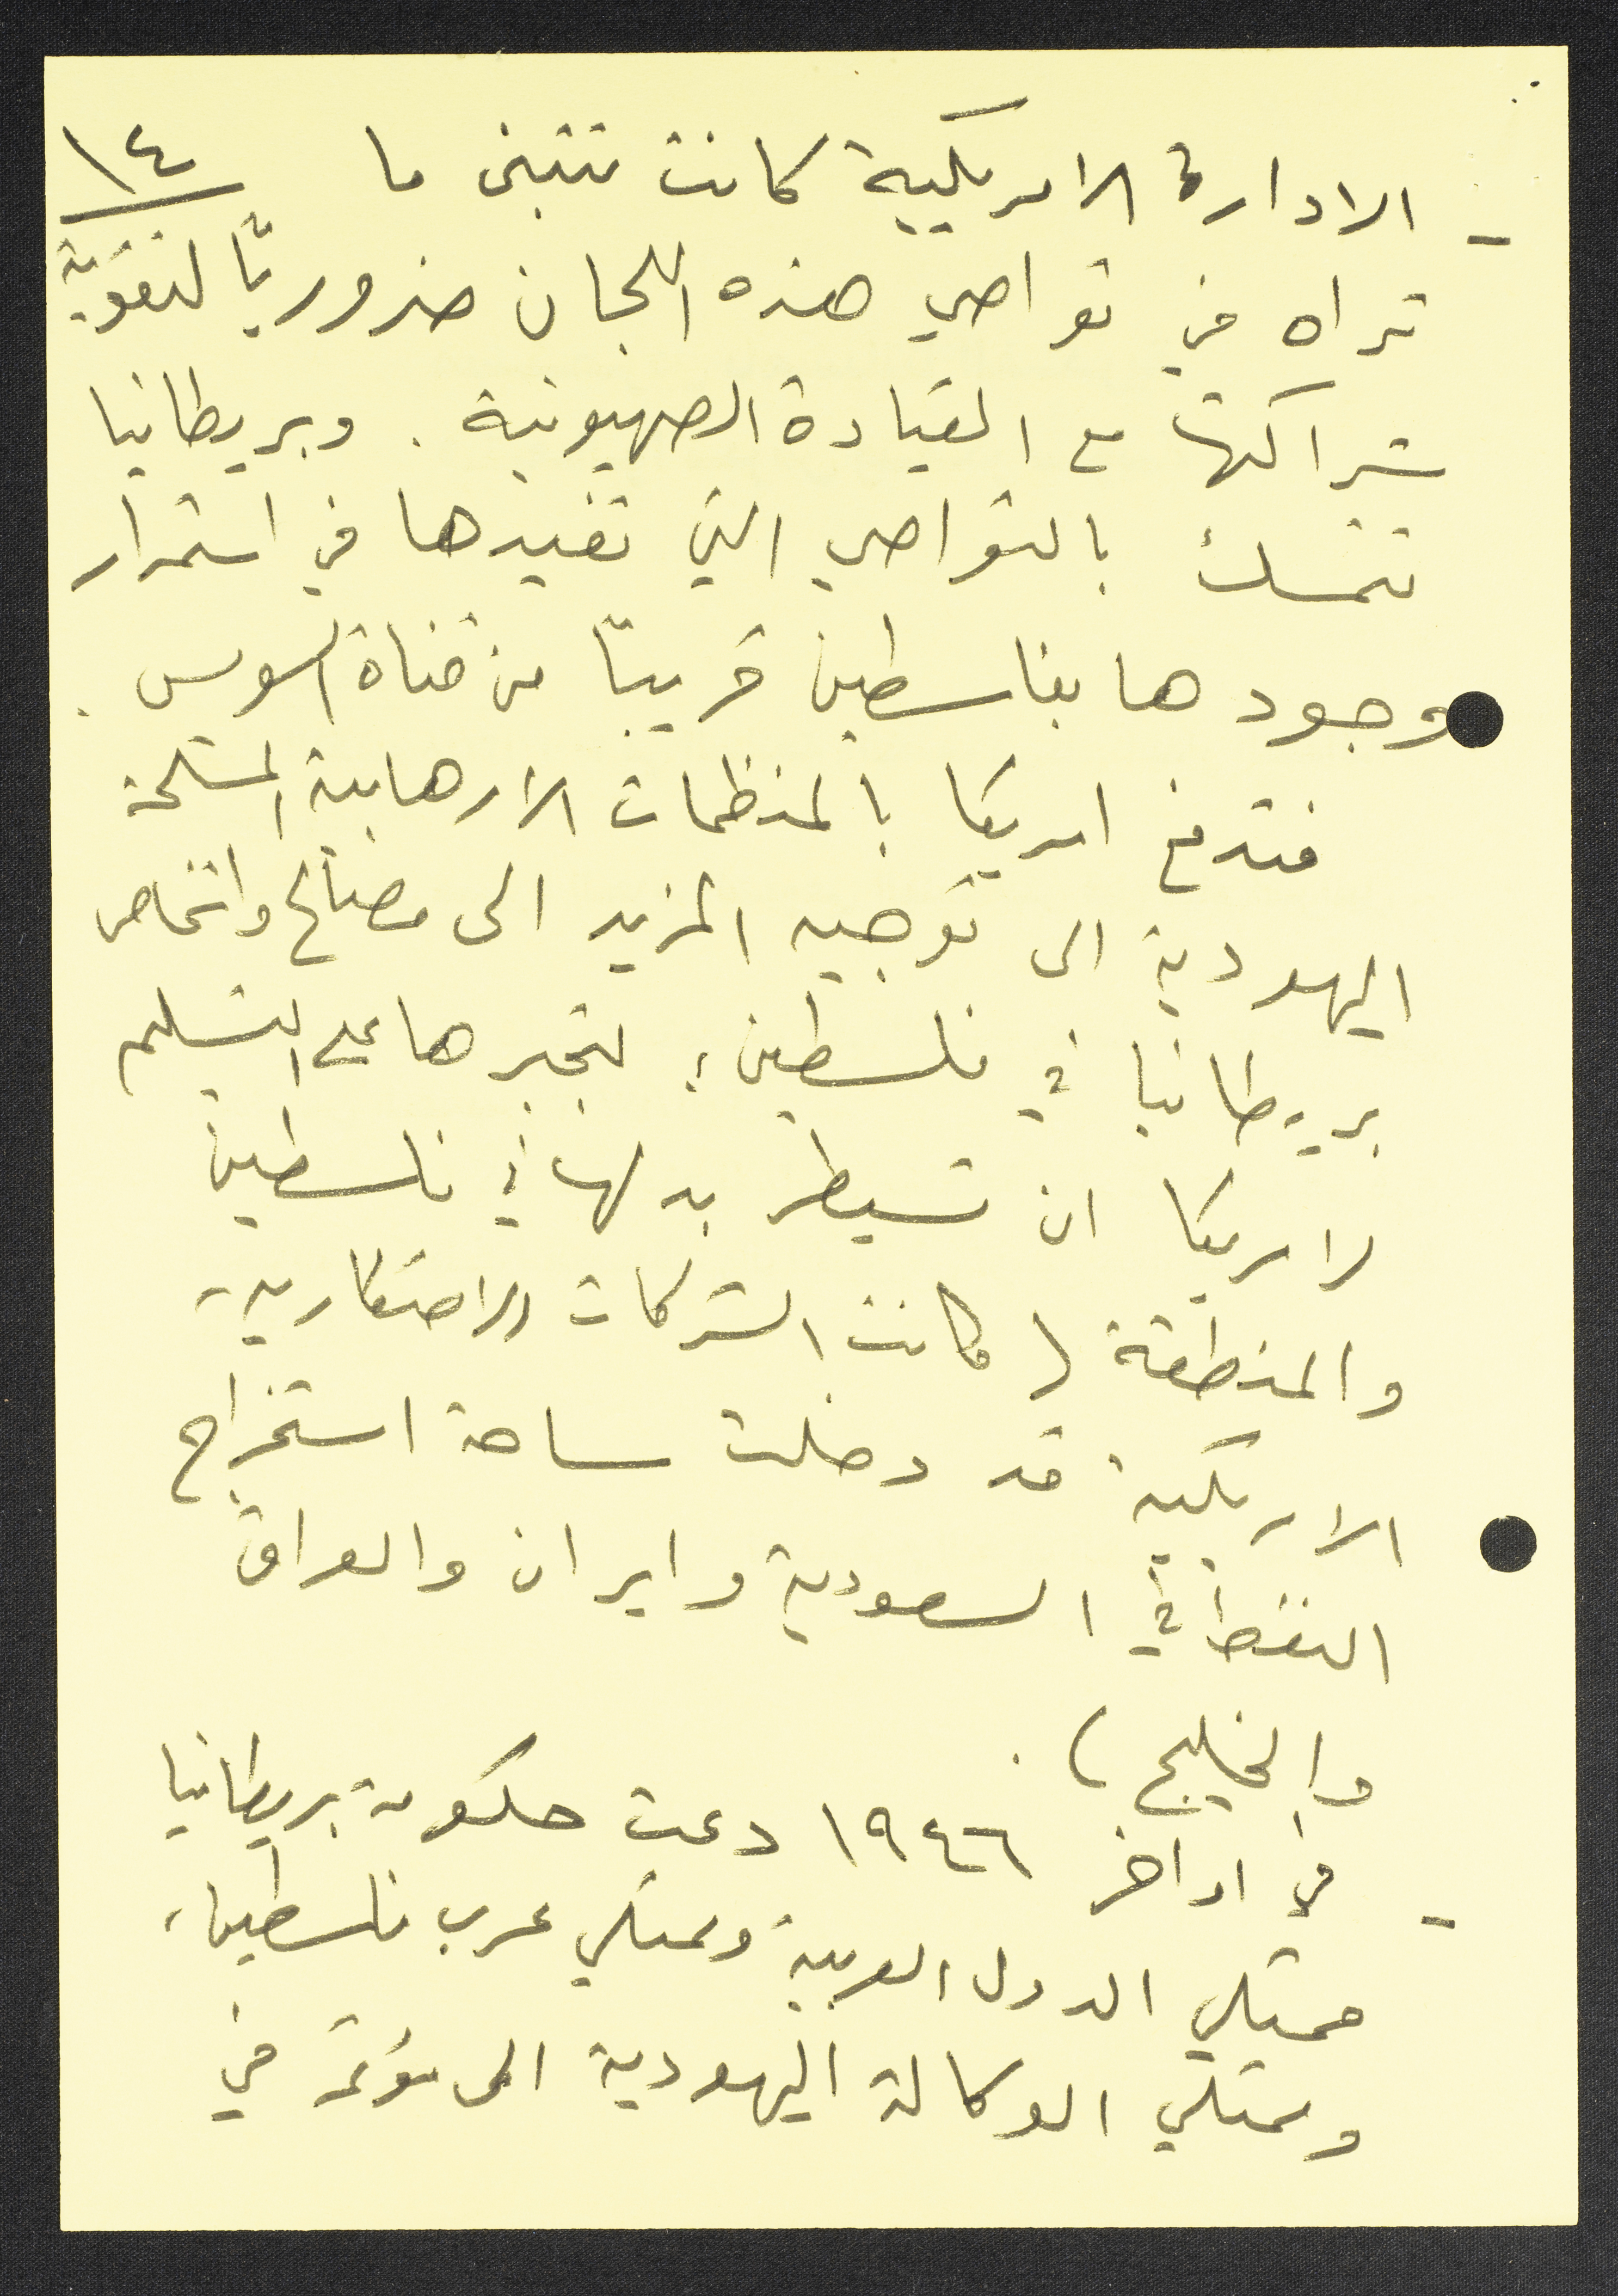 ١٤
- الادارة الامريكية كانت تتبنى ما
تراه في تواصي هذه اللجان ضروريًا لتقوية
شراكتها مع القيادة الصهيونية. وبريطانيا
تتمسك بالتواصي التي تفيدها في استمرار
وجودها بفلسطين قريبًا من قناة السويس.
فتدفع امريكا بالمنظمات الارهابية المسلحة
اليهودية الى توجيه المزيد الى مصالح واشخاص
بريطانيا في فلسطين، لتجبرها على التسليم
لامريكا ان تسيطر بدلها في فلسطين
والمنطقة (كانت الشركات الاحتكارية
الامريكية قد دخلت ساحة استخراج
النفط في السعودية وايران والعراق
والخليج).
- في اواخر ١٩٤٦ دعت حكومة بريطانيا
ممثلي الدول العربية وممثلي عرب فلسطين،
وممثلي الوكالة اليهودية الى مؤتمر في